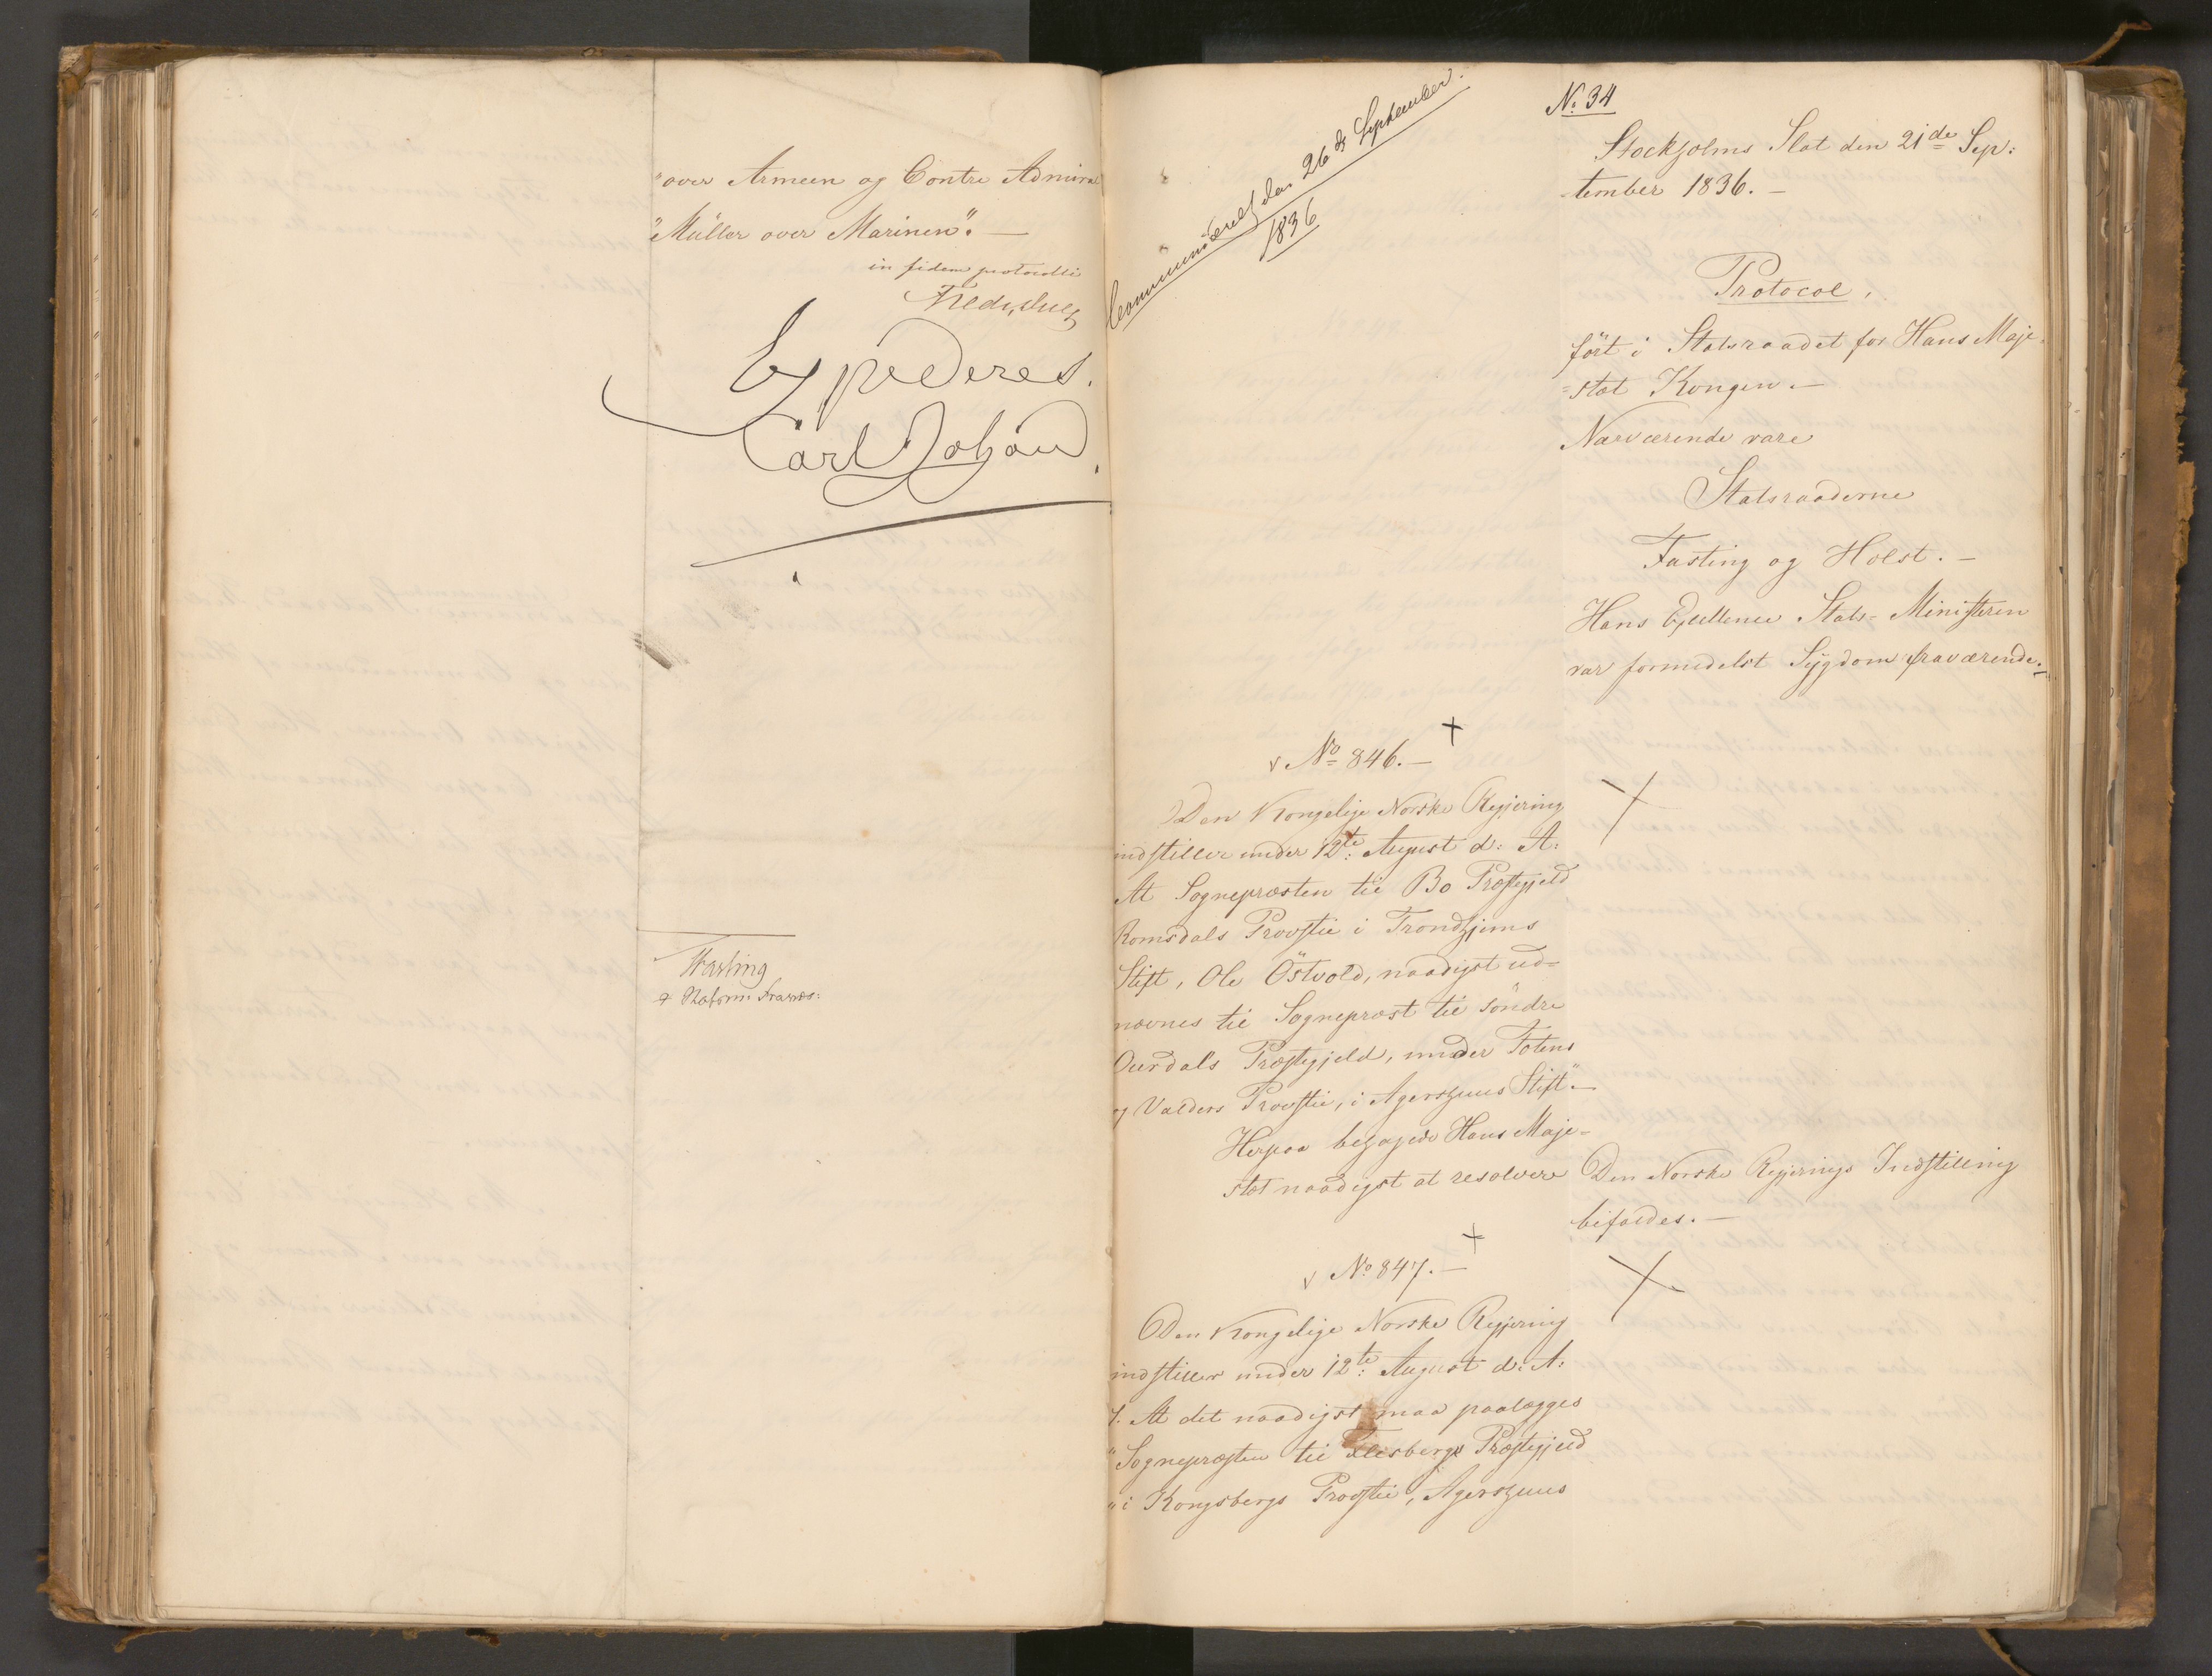 "over Armeen og Contre Admiral
"Müller over Marinen". —
in fidem protocolli
Expederes.
Carl Johan.
Fasting
Communiceret den 26 de September.
1836
No. 34
Stockholms Slot den 21de Sep:
tember 1836. —
Protocol,
ført i Statsraadet for Hans Maje-
=stæt Kongen. —
Nærværende vare
Statsraaderne
Fasting og Holst. —
Hans Excellence Stats-Ministeren
var formedelst Sygdom fraværende. —
No 846. —
Den Kongelige Norske Regjering
indstiller under 12te: August d: A:
At Sognepræsten til Bo Præstegjeld
Romsdals Provstie i Trondhjems
Stift, Ole Östvold, naadigst ud=
nævnes til Sognepræst til söndre
Ourdals Præstegjeld, under Totens
og Valders Provstie, i Agershuus Stift". —
Herpaa behagede Hans Maje-
stæt naadigst at resolvere
Den Norske Regjerings Indstilling
bifaldes. —
No 847. —
Den Kongelige Norske Regjering
indstiller under 12te: August d: A:
1. At det naadigst maa paalægges
"Sognepræsten til Flesbergs Præstegjeld
"i Kongsbergs Provstie, Agershuus